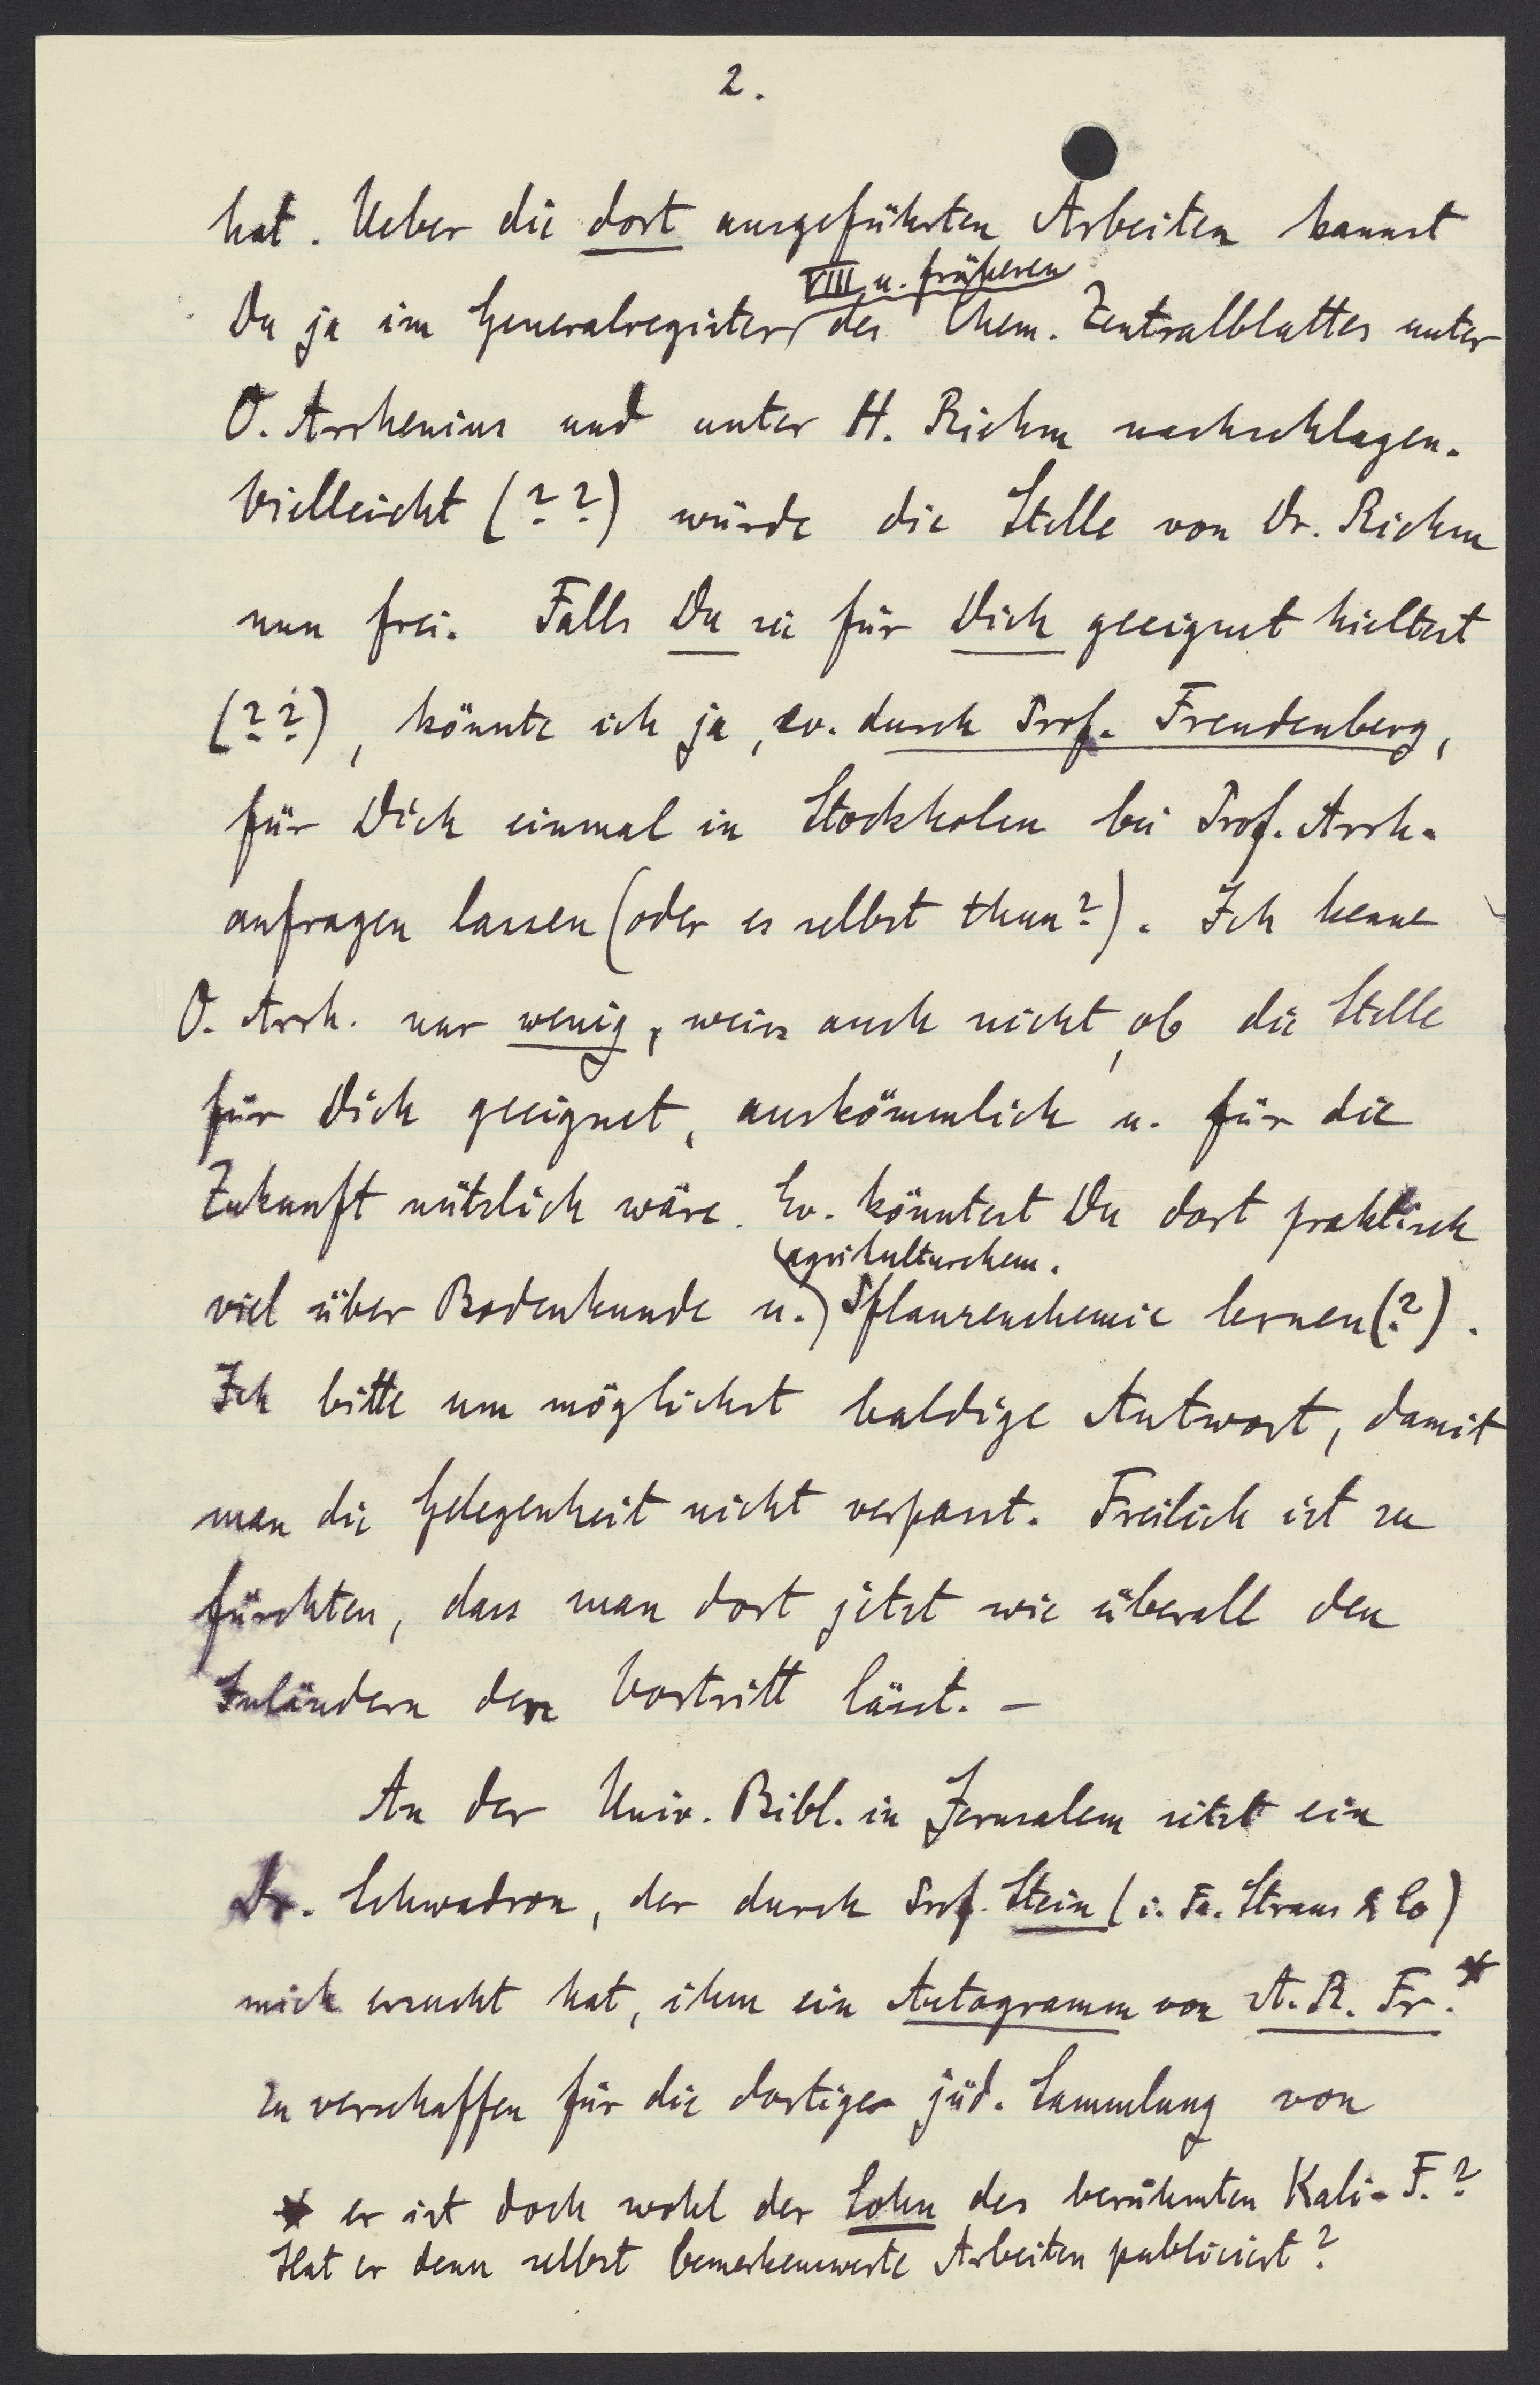 2.
hat. Ueber die dort ausgeführten Arbeiten kannst
VIII u. früheren
Du ja im Generalregister des Chem. Zentralblattes unter
O. Arrhenius und unter H. Riehm nachschlagen.
Vielleicht (??) würde die Stelle von Dr. Riehm
nun frei. Falls Du sie für Dich geeignet hieltest
(??), könnte ich ja, ev. durch Prof. Freudenberg,
für Dich einmal in Stockholm bei Prof. Arrh.
anfragen lassen (oder es selbst thun?). Ich kenne
O. Arrh. nur wenig, weiss auch nicht, ob die Stelle
für Dich geeignet, auskömmlich u. für die
Zukunft nützlich wäre. Ev. könntest Du dort praktisch
agrikulturchem.
viel über Bodenkunde u. Pflanzenchemie lernen(?).
Ich bitte um möglichst baldige Antwort, damit
man die Gelegenheit nicht verpasst. Freilich ist zu
fürchten, dass man dort jetzt wie überall den
Inländern den Vortritt lässt. –
An der Univ. Bibl. in Jerusalem sitzt ein
Dr. Schwadron, der durch Prof. Stein (i. Fa. Straus & Co)
mich ersucht hat, ihm ein Autogramm von A. R. Fr.*
zu verschaffen für die dortige jüd. Sammlung von
* er ist doch wohl der Sohn des berühmten Kali-F.?
Hat er denn selbst bemerkenswerte Arbeiten publiciert?